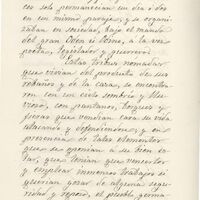 ces solo permanecian un dia ó dos
en un mismo paraje, y se organi-
zaban en sociedad, bajo el mando
del gran Odin ó Votan, á la vez
poeta, legislador y guerrero.
Estas tribus nómadas
que vivian del producto de sus
rebaños y de la caza, se encontra-
ron con un cielo sombrío y llu-
vioso, con pantanos, bosques y
fieras que vendian cara su vida
atacando y defendiendose, y en
presencia de tales elementos
que se oponian á su bien es-
tar, que tenian que vencerlos
y emplear inmensos trabajos si
querian gozar de alguna segu-
ridad y reposo, el pueblo germa-